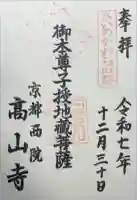 奉拝
令和七年
十二月三十日
御本尊子授地蔵菩薩
京都西院
高山寺